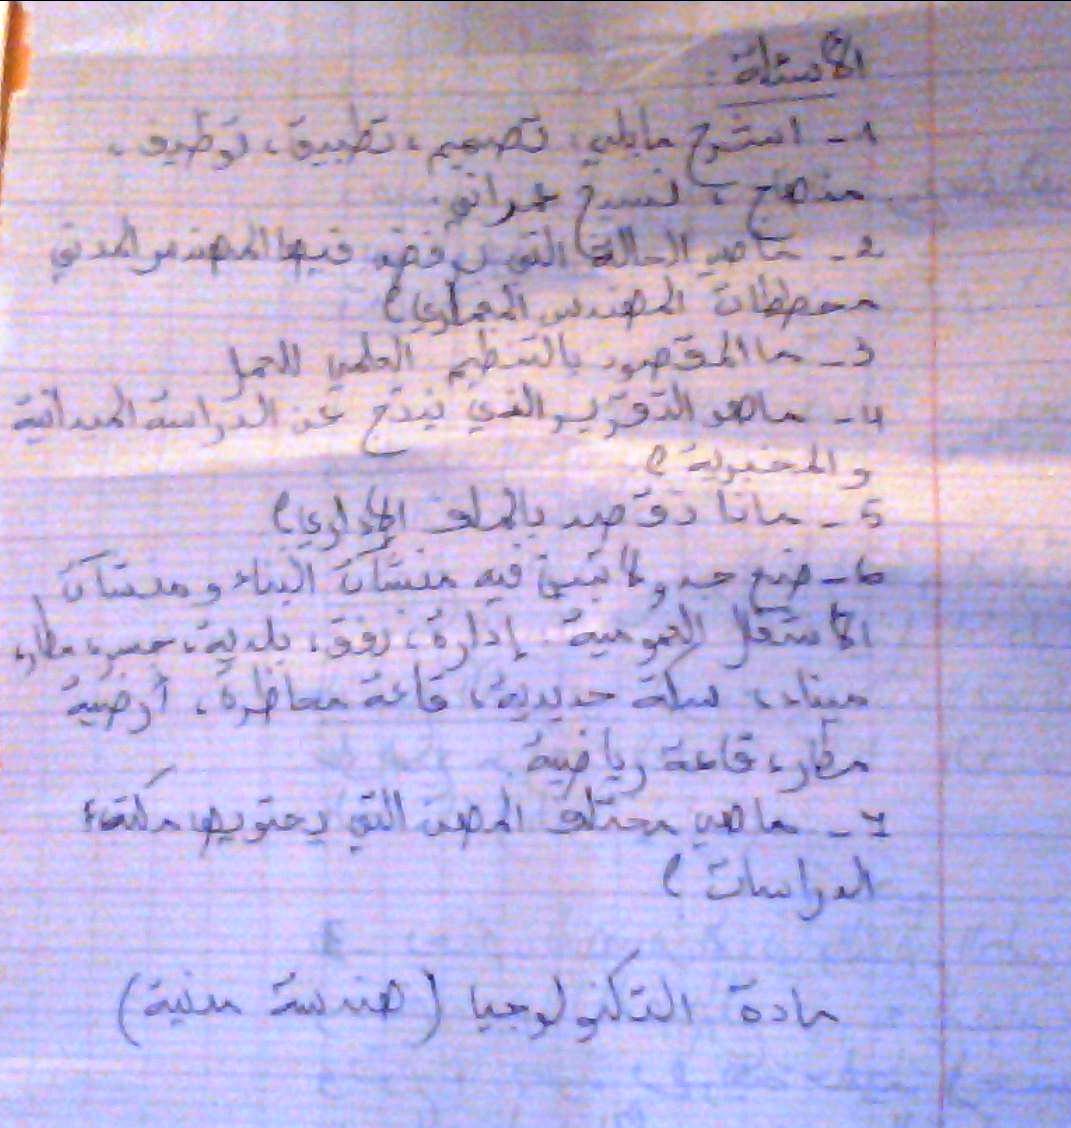 الأسئلة :
1- اشرح مايلي: تصميم، تطبيق، توظيف،
منهاج، نسيج عمراني.
2- ماهي الحالة التي يرفض فيها المهندس المدني
مخططات المهندس المعماري؟
3- ما المقصود بالتنظيم العلمي للعمل
4- ماهو التقرير الذي ينتج عن الدراسة الميدانية
والمخبرية؟
5- ماذا تقصد بالملف الإداري؟
6- ضع جدولا تبين فيه منشآت البناء و منشآت
الأشغال العمومية. إدارة، نفق، بلدية، جسر، مطار،
ميناء، سكة حديدية، قاعة محاظرة، أرضية
مطار، قاعة رياضية
7- ماهي مختلف المهن التي يحتويها مكتب
الدراسات؟
مادة التكنولوجيا (هندسة مدنية)